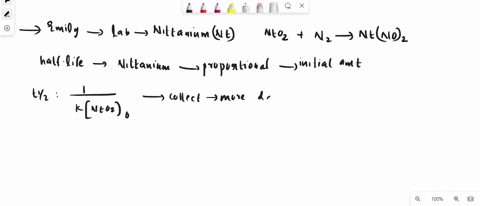 → Emily → Lab → Niltanium (Nt) NtO2 + N2 → Nt(NO)2
half-life → Niltanium → proportional → initial amt
t1/2 : 1 / K[NtO2]0 → collect → more d
100%